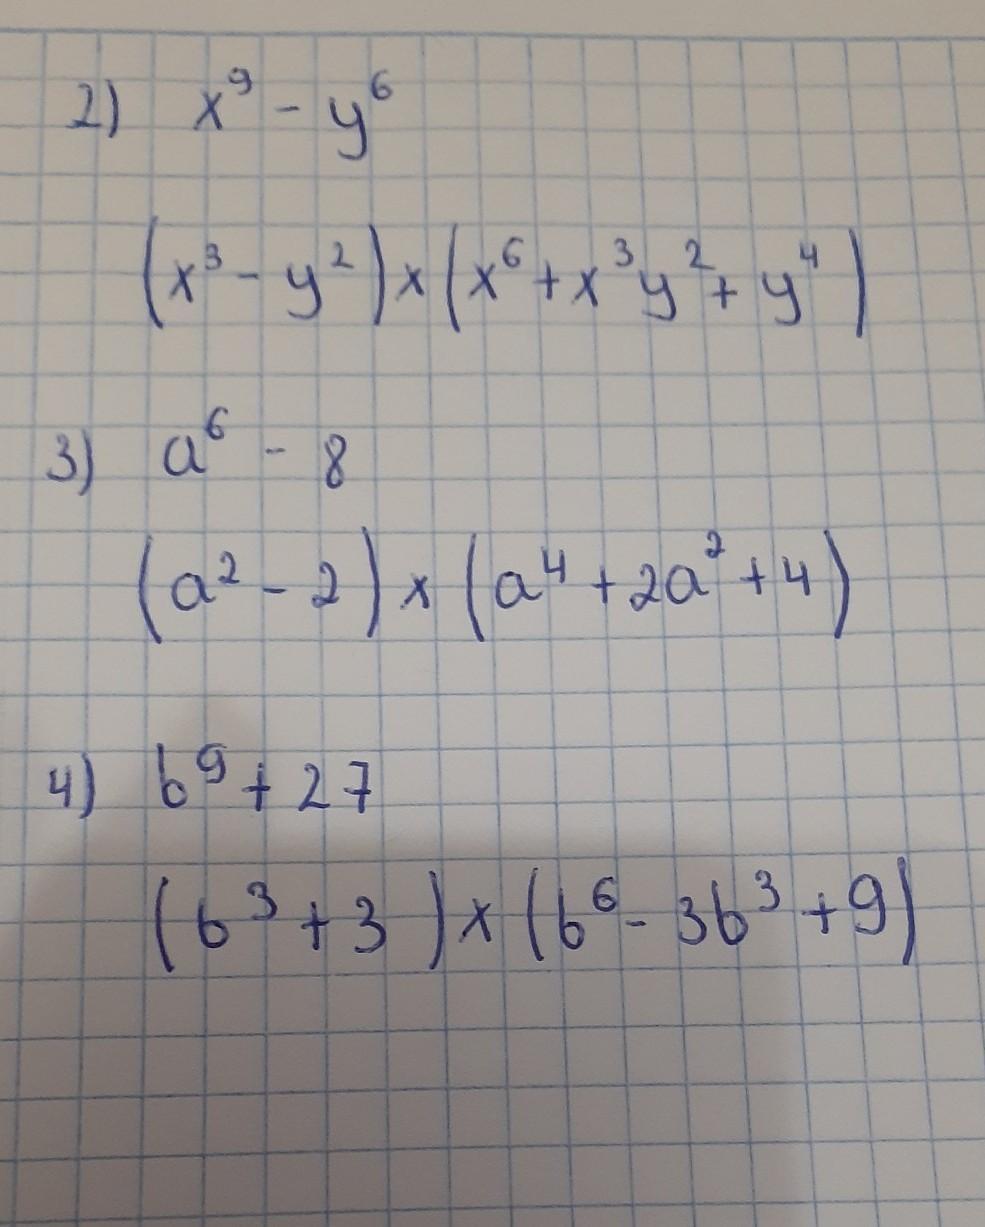 2) x⁹ - y⁶
(x³ - y²) × (x⁶ + x³y² + y⁴)
3) a⁶ - 8
(a² - 2) × (a⁴ + 2a² + 4)
4) b⁹ + 27
(b³ + 3) × (b⁶ - 3b³ + 9)